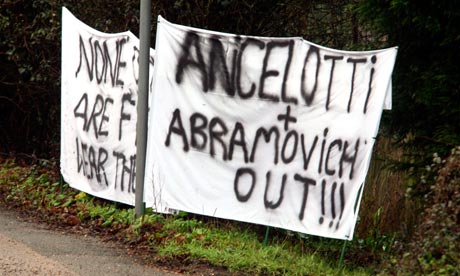 NONE
ARE F
WEAR THE
ANCELOTTI
+
ABRAMOVICH
OUT!!!